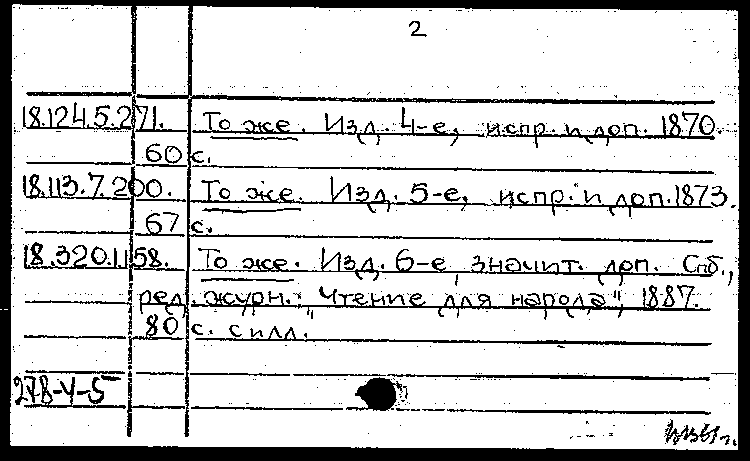 2
18.124.5.271. То же. Изд. 4-е, испр. и доп. 1870.
60 с.
18.113.7.200. То же. Изд. 5-е, испр. и доп. 1873.
67 с.
18.320.1.158. То же. Изд. 6-е, значит. доп. Спб.,
ред. журн.: "Чтение для народа", 1887.
80 с. с илл.
278-У-5